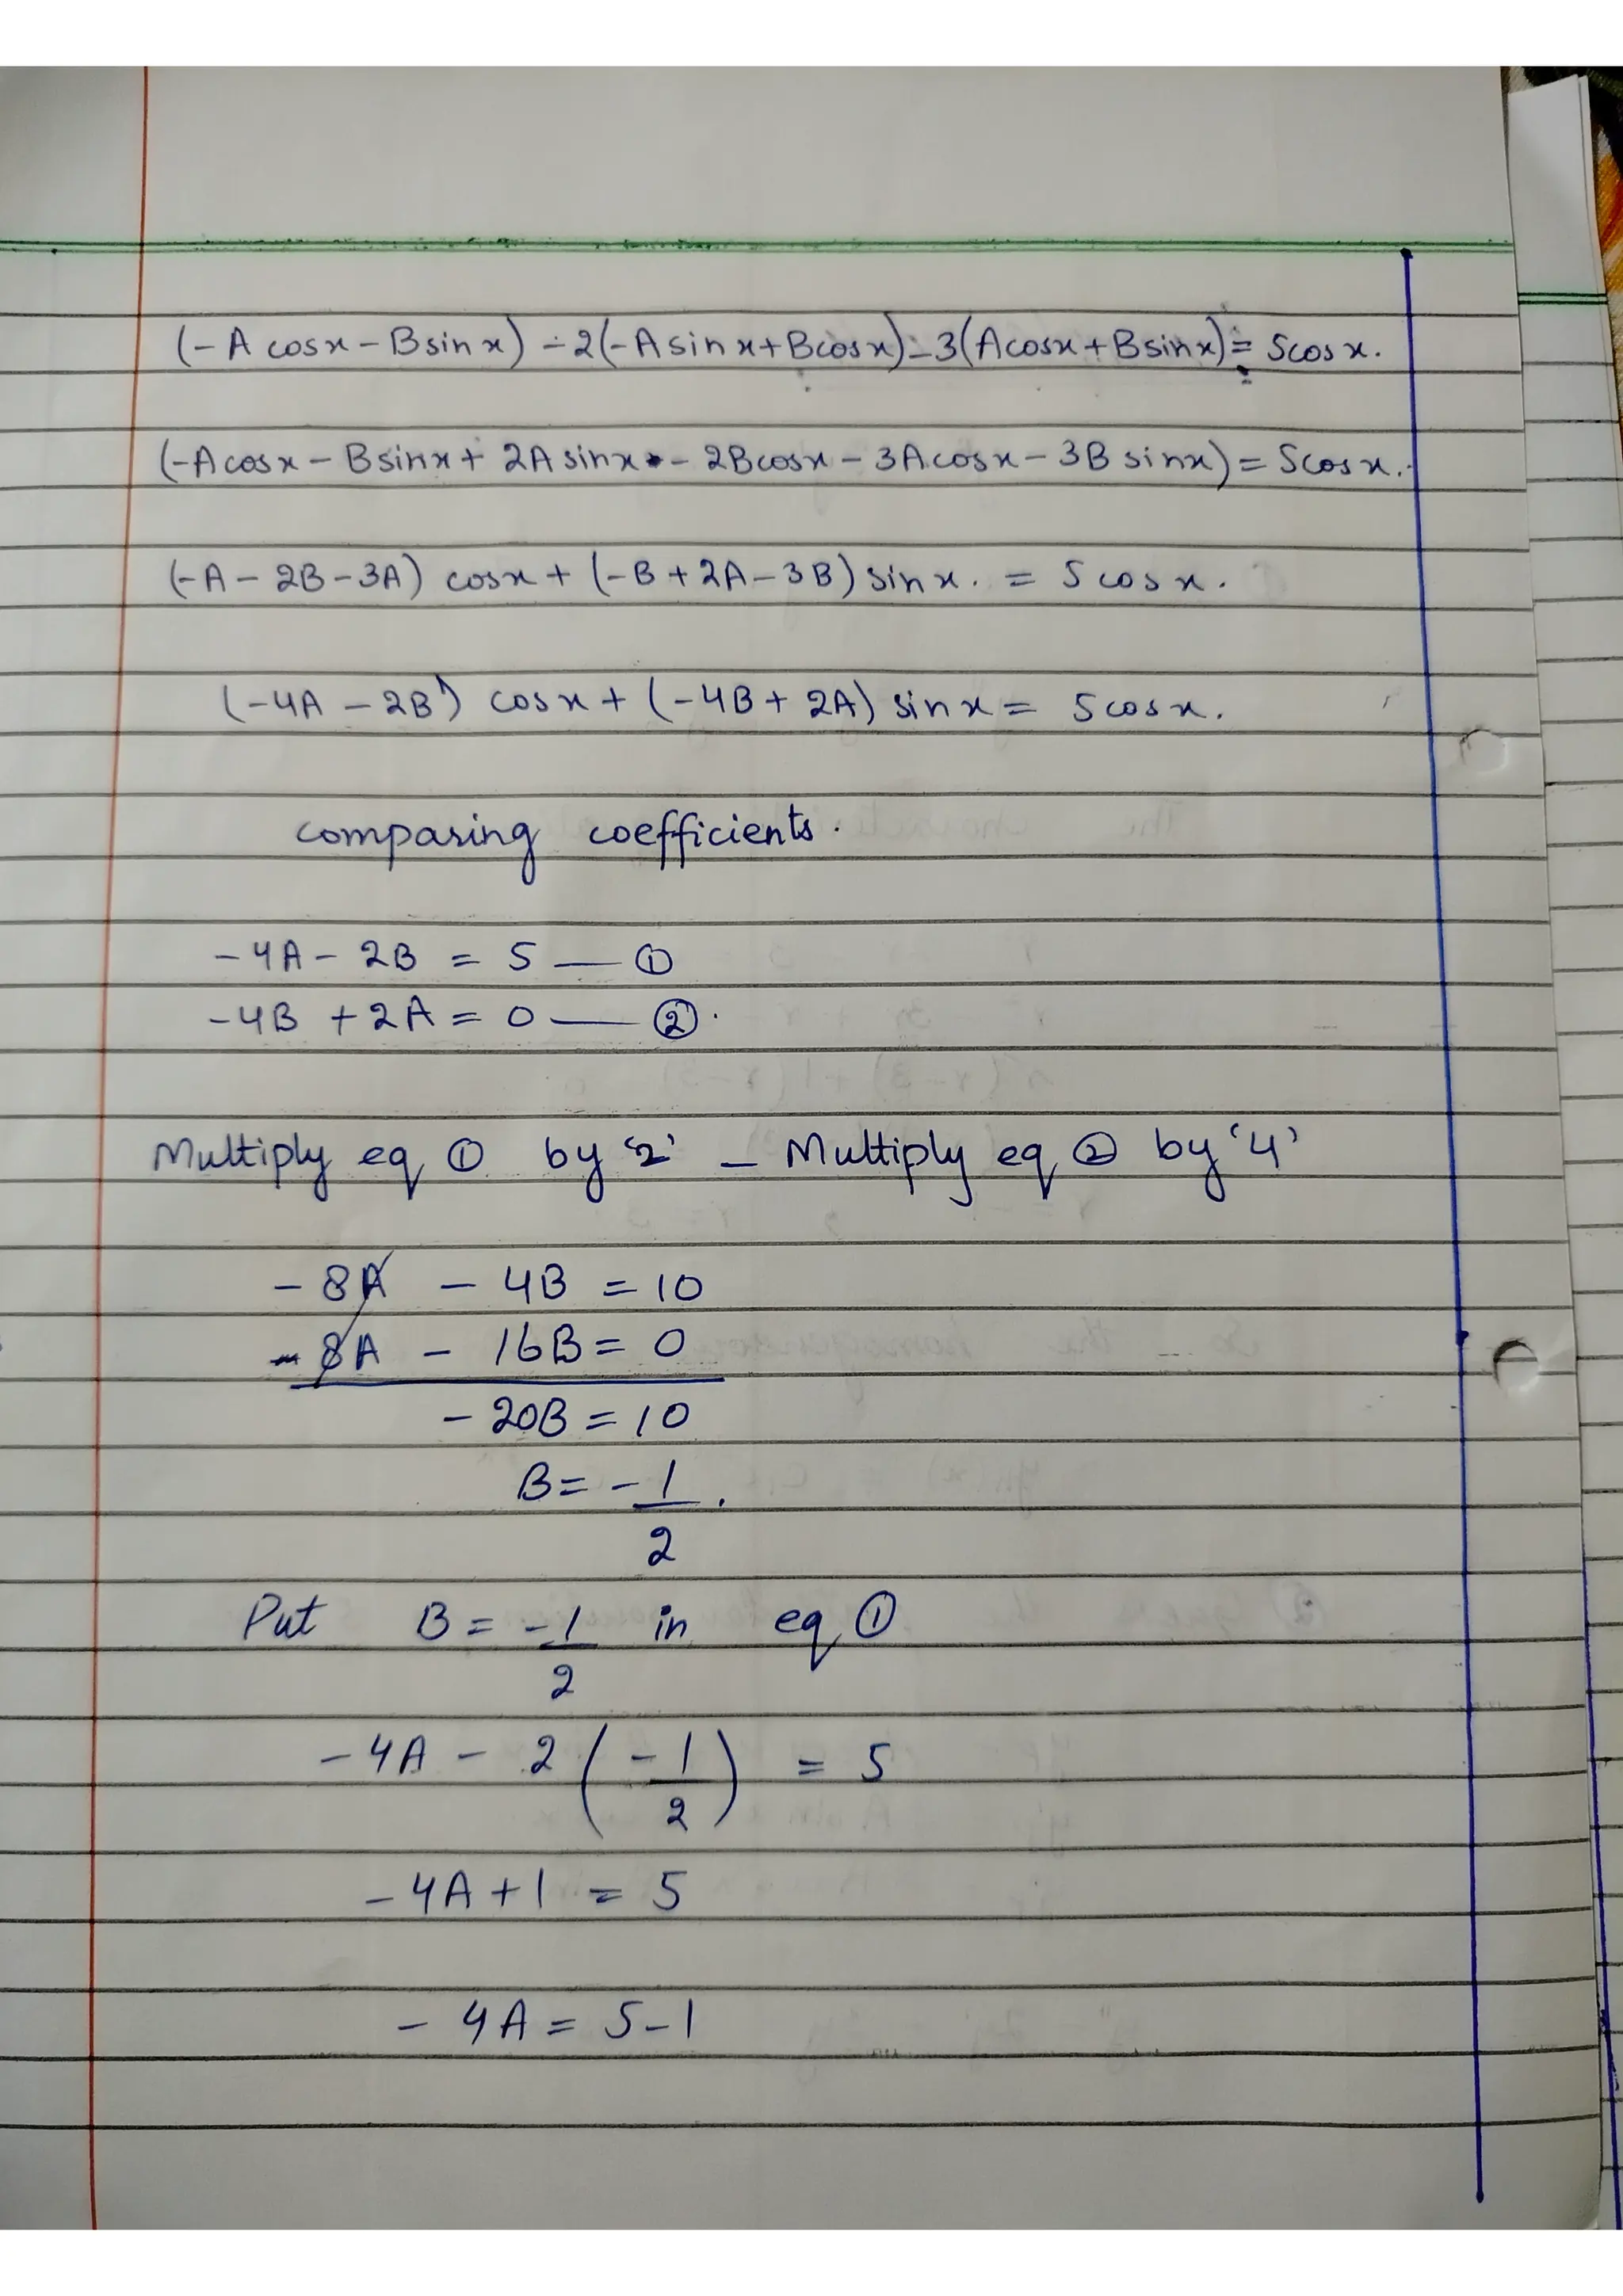 (-A cosx - B sinx) - 2(-A sinx + B cosx) - 3(A cosx + B sinx) = 5 cosx.
(-A cosx - B sinx + 2A sinx - 2B cosx - 3A cosx - 3B sinx) = 5 cosx.
(-A - 2B - 3A) cosx + (-B + 2A - 3B) sinx. = 5 cosx.
(-4A - 2B) cosx + (-4B + 2A) sinx = 5 cosx.
comparing coefficients.
-4A - 2B = 5 — ①
-4B + 2A = 0 — ②.
Multiply eq ① by '2' - Multiply eq ② by '4'
- 8A - 4B = 10
- 8A - 16B = 0
- 20B = 10
B = -1/2.
Put B = -1/2 in eq ①
-4A - 2(-1/2) = 5
-4A + 1 = 5
- 4A = 5 - 1